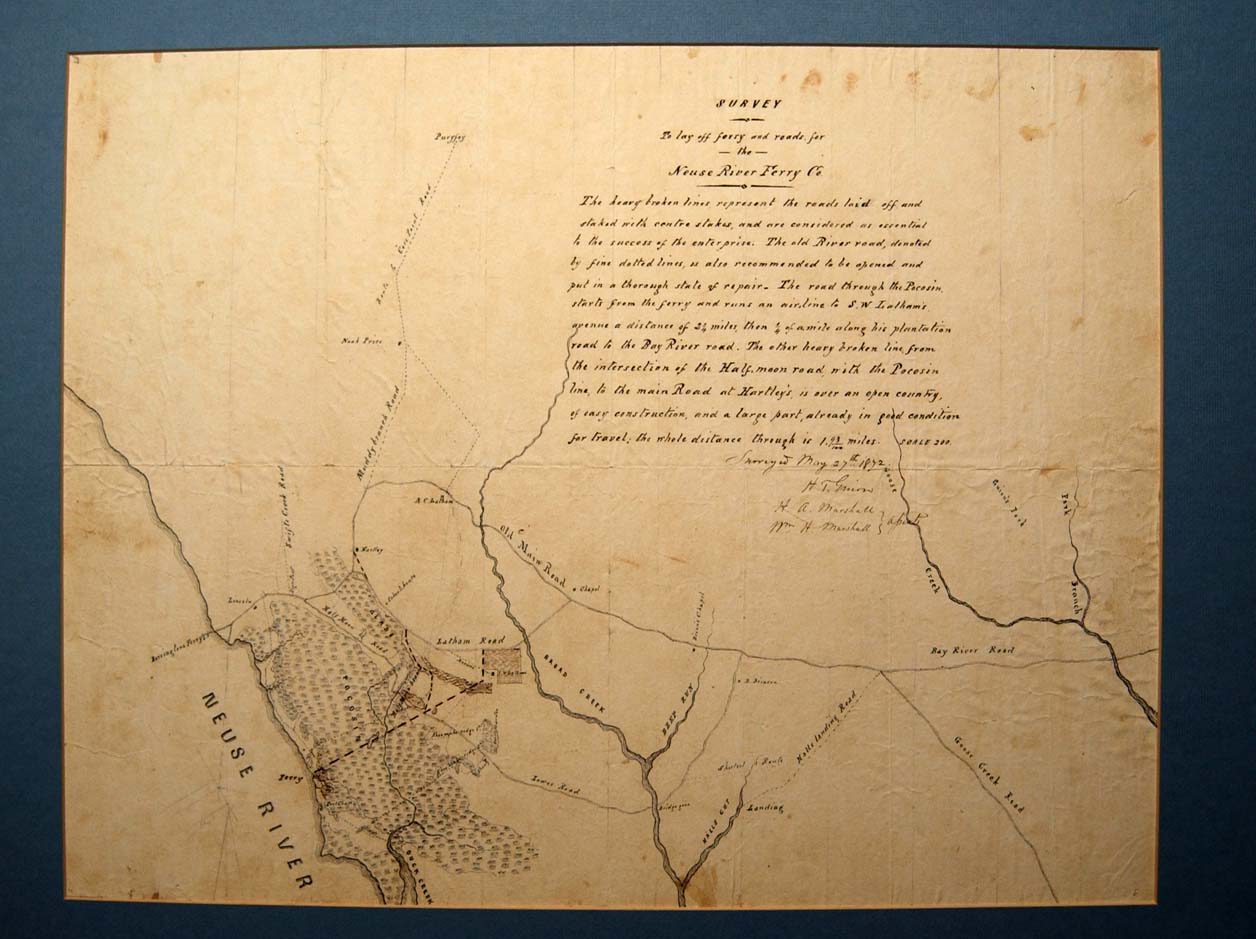 SURVEY
To lay off ferry and roads for
the
Neuse River Ferry Co
The heavy broken lines represent the roads laid off and
staked with centre stakes, and are considered as essential
to the success of the enterprise. The old River road, denoted
by fine dotted lines, is also recommended to be opened and
put in a thorough state of repair. The road through the Pocosin,
starts from the ferry and runs an airline to S.W Latham's
avenue a distance of 2¼ miles, then ¼ of a mile along his plantation
road to the Bay River road. The other heavy broken line from
the intersection of the Half-moon road, with the Pocosin
line, to the main Road at Hartley's, is over an open country,
of easy construction, and a large part, already in good condition
for travel; the whole distance through is 1 miles. SCALE 200.
Surveyed May 27th 1872
H. T. Guion
H A. Marshall
Wm H. Marshall
Route to Overland Road
Noah Price
Muddy branch Road
Swifts Creek Road
A.C. Latham
Hartley
Old Main Road
Chapel
Goose
Creek
Fork
Branch
Lincoln
Half Moon Road
Latham Road
BROAD CREEK
Chapel
Bay River Road
POCOSIN
BRST RUN
NEUSE RIVER
Ferry
Lower Road
Shortest Route
Halls landing Road
Landing
HALLS GUT
Goose Creek Road
CREEK